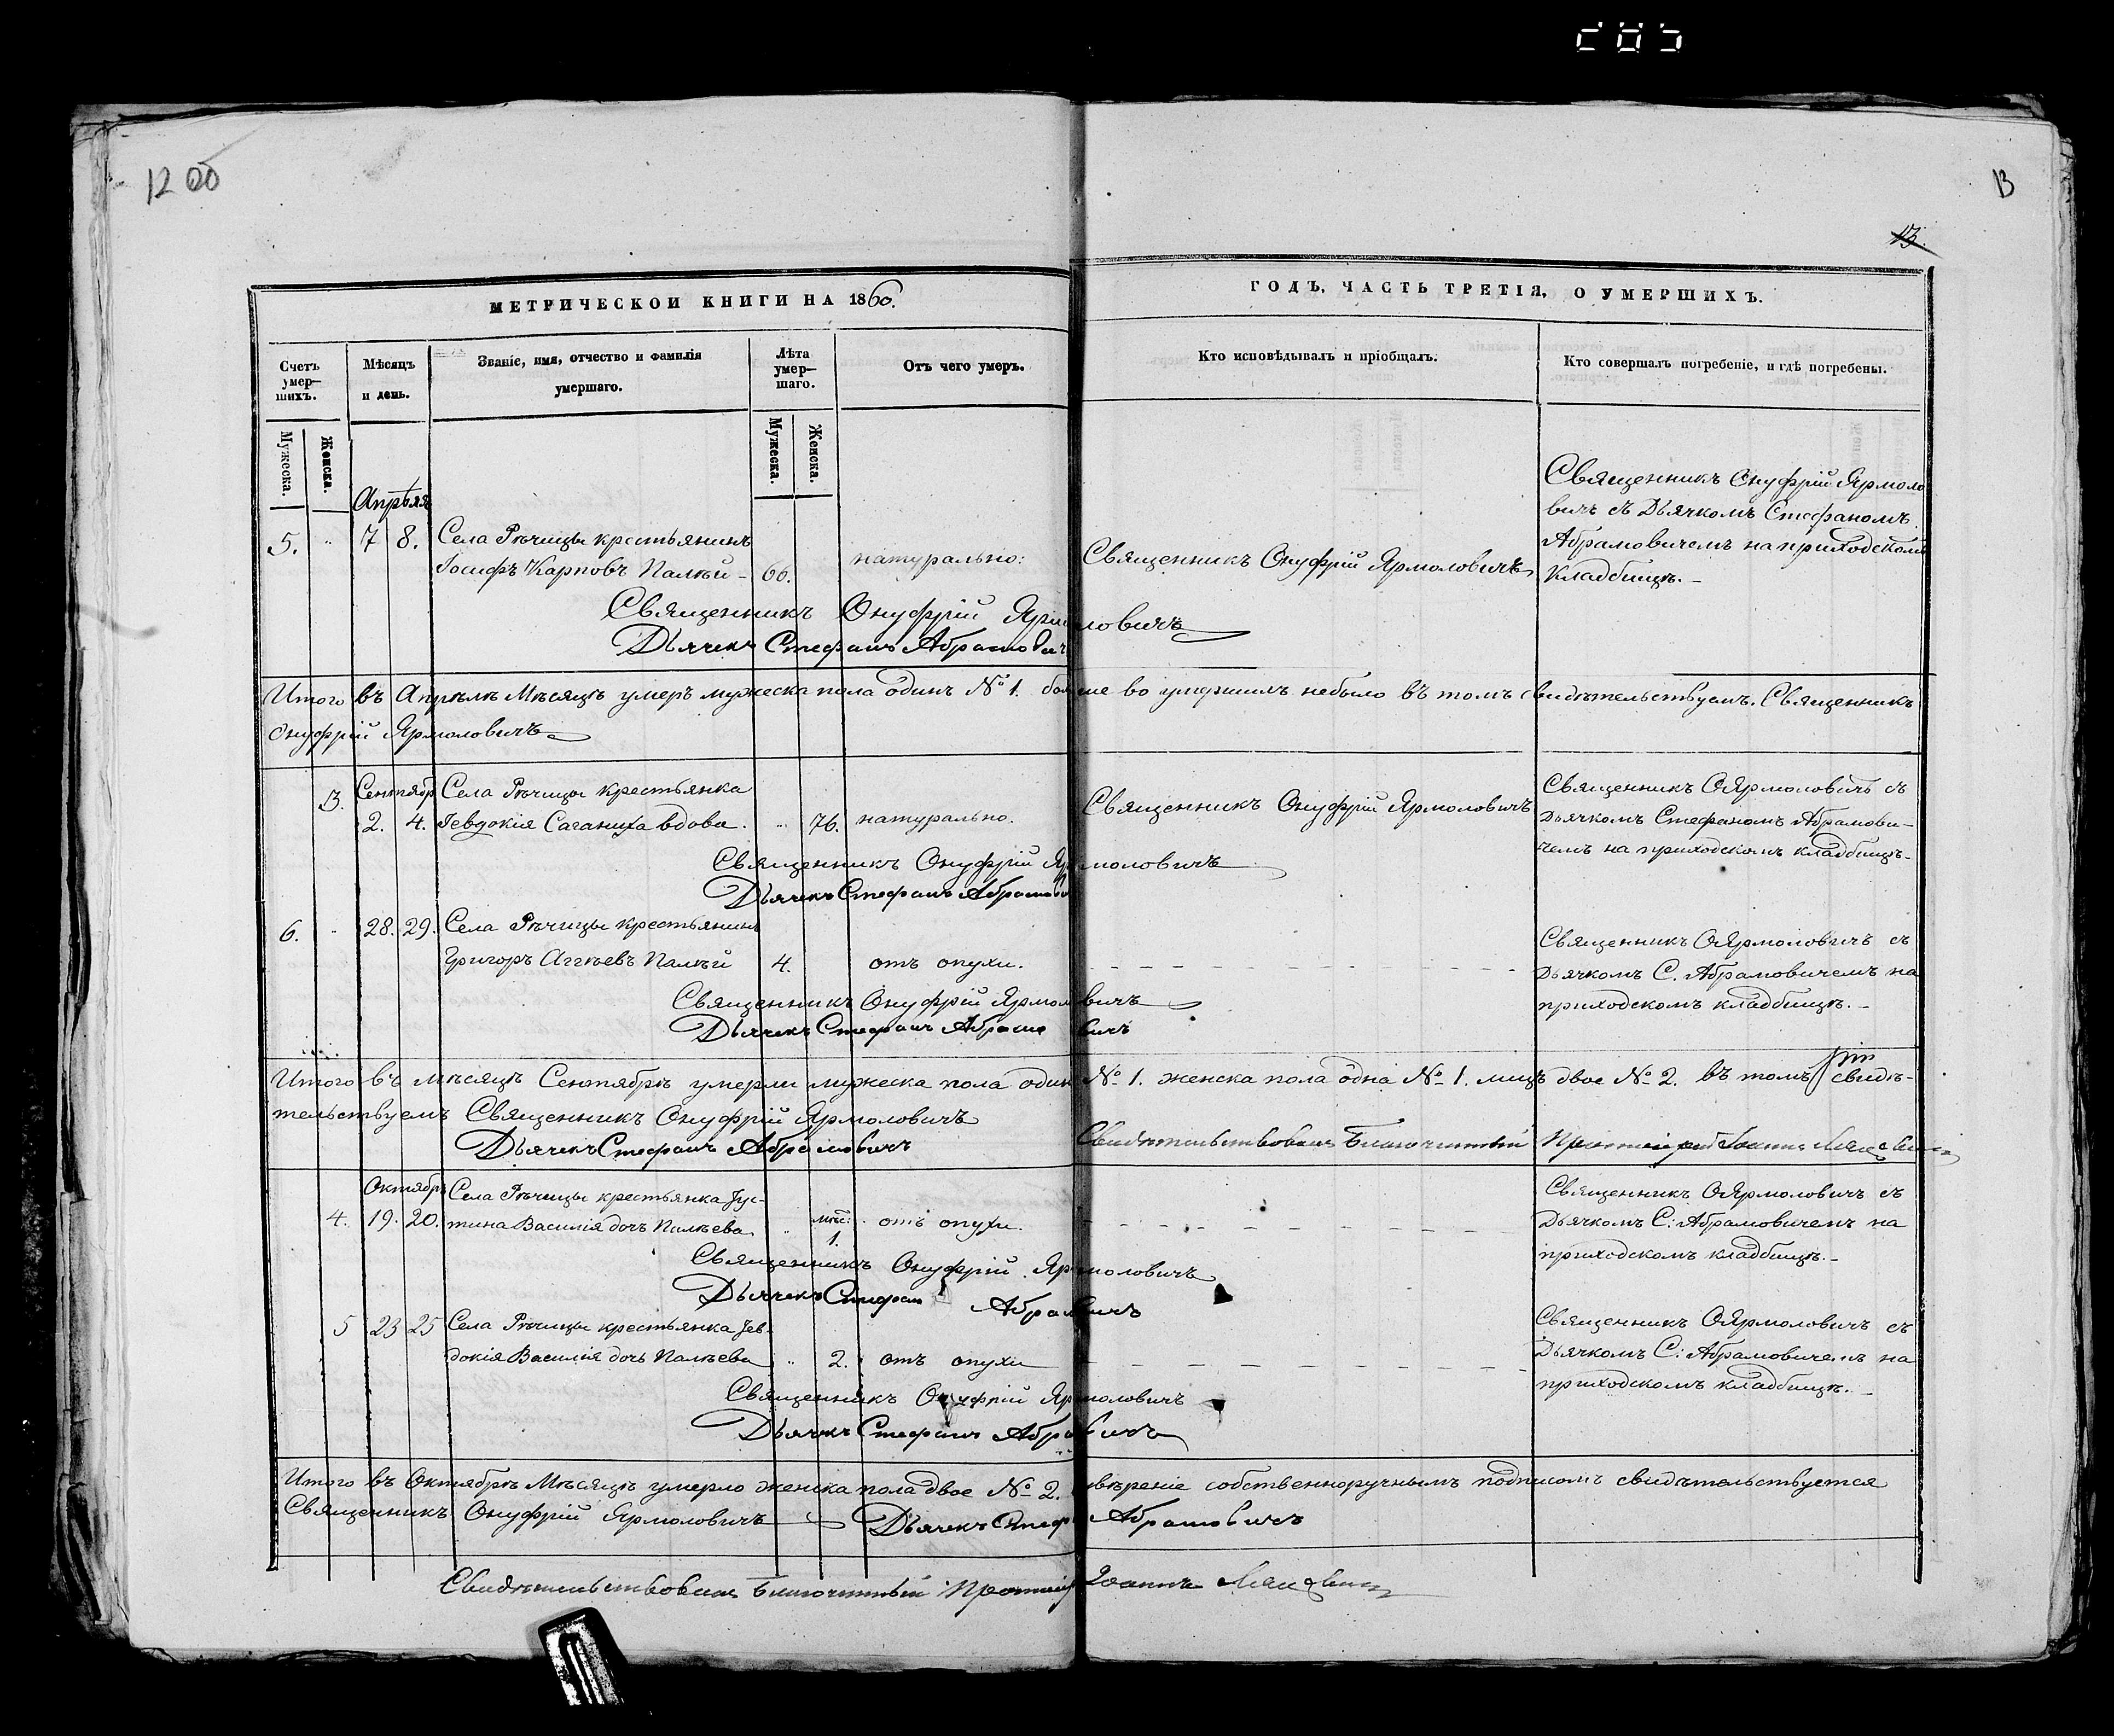 12 00
13
13.
МЕТРИЧЕСКОЙ КНИГИ НА 1860.
ГОДЪ, ЧАСТЬ ТРЕТІЯ, О УМЕРШИХЪ.
Счетъ умер—шихъ.
Мужеска.
Женска.
Мѣсяцъ и день.
Званіе, имя, отчество и фамилія
умершаго.
Лѣта умер—шаго.
Мужеска.
Женска.
Отъ чего умеръ.
Кто исповѣдывалъ и пріобщалъ.
Кто совершалъ погребеніе, и гдѣ погребены.
Апрѣля
5. " 7 8. Села Рѣчицы крестьянинъ
Іосифъ Карповъ Палѣй - 66. натурально:
Священникъ Онуфрій Ярмоловичъ
Священникъ Онуфрій Ярмоло
вичъ съ Дьячкомъ Стефаномъ
Абрамовичемъ на приходскомъ
кладбищѣ. -
Священникъ Онуфрій Ярмоловичъ
Дьячекъ Стефанъ Абрамович
Итого въ Апрѣлѣ Мѣсяцѣ умеръ мужеска пола одинъ № 1. больше во умершимъ небыло въ томъ свидѣтельствуемъ. Священникъ
Онуфрій Ярмоловичъ
3. Сентябр Села Рѣчицы крестьянка
2. 4. Іевдокія Саганиха вдова. " 76. натурально.
Священникъ Онуфрій Ярмоловичъ
Священникъ О Ярмоловичъ съ
Дьячкомъ Стефаномъ Абрамови-
чемъ на приходскомъ кладбищѣ-
Священникъ Онуфрій Ярмоловичъ
Дьячекъ Стефанъ Абрамови
6. " 28. 29. Села Рѣчицы крестьянинъ
Григоръ Аггѣевъ Палѣй 4. отъ опухи.
Священникъ О Ярмоловичъ съ
Дьячкомъ С. Абрамовичемъ на
приходскомъ кладбищѣ. -
Священникъ Онуфрій Ярмоловичъ
Дьячекъ Стефанъ Абрамовичъ
Итого въ мѣсяцѣ Сентябрѣ умерли мужеска пола один № 1. женска пола одна № 1. лицъ двое № 2. въ томъ свидѣ-
тельствуемъ Священникъ Онуфрій Ярмоловичъ
Дьячекъ Стефанъ Абрамовичъ
Свидѣтельствовалъ Благочинный Протоіерей Іоаннъ
Октябрь Села Рѣчицы крестьянка Іус-
4. 19. 20. тина Василія дочъ Палѣева " мѣс: 1. отъ опухи.
Священникъ О Ярмоловичъ съ
Дьячкомъ С: Абрамовичемъ на
приходскомъ кладбищѣ. -
Священникъ Онуфрій Ярмоловичъ
Дьячекъ Стефан Абрамовичъ
5 23 25 Села Рѣчицы крестьянка Іев-
докія Василія дочь Палѣева " 2. отъ опухи
Священникъ О Ярмоловичъ съ
Дьячкомъ С: Абрамовичемъ на
приходскомъ кладбищѣ. -
Священникъ Онуфрій Ярмоловичъ
Дьячекъ Стефанъ Абрамовичъ
Итого въ Октябрѣ Мѣсяцѣ умерло женска пола двое № 2. увѣреніе собственноручнымъ подписомъ свидѣтельствуется
Священникъ Онуфрій Ярмоловичъ Дьячекъ Стеф Абрамовичъ
Свидѣтельствовалъ Благочинный Протоіер Іоаннъ